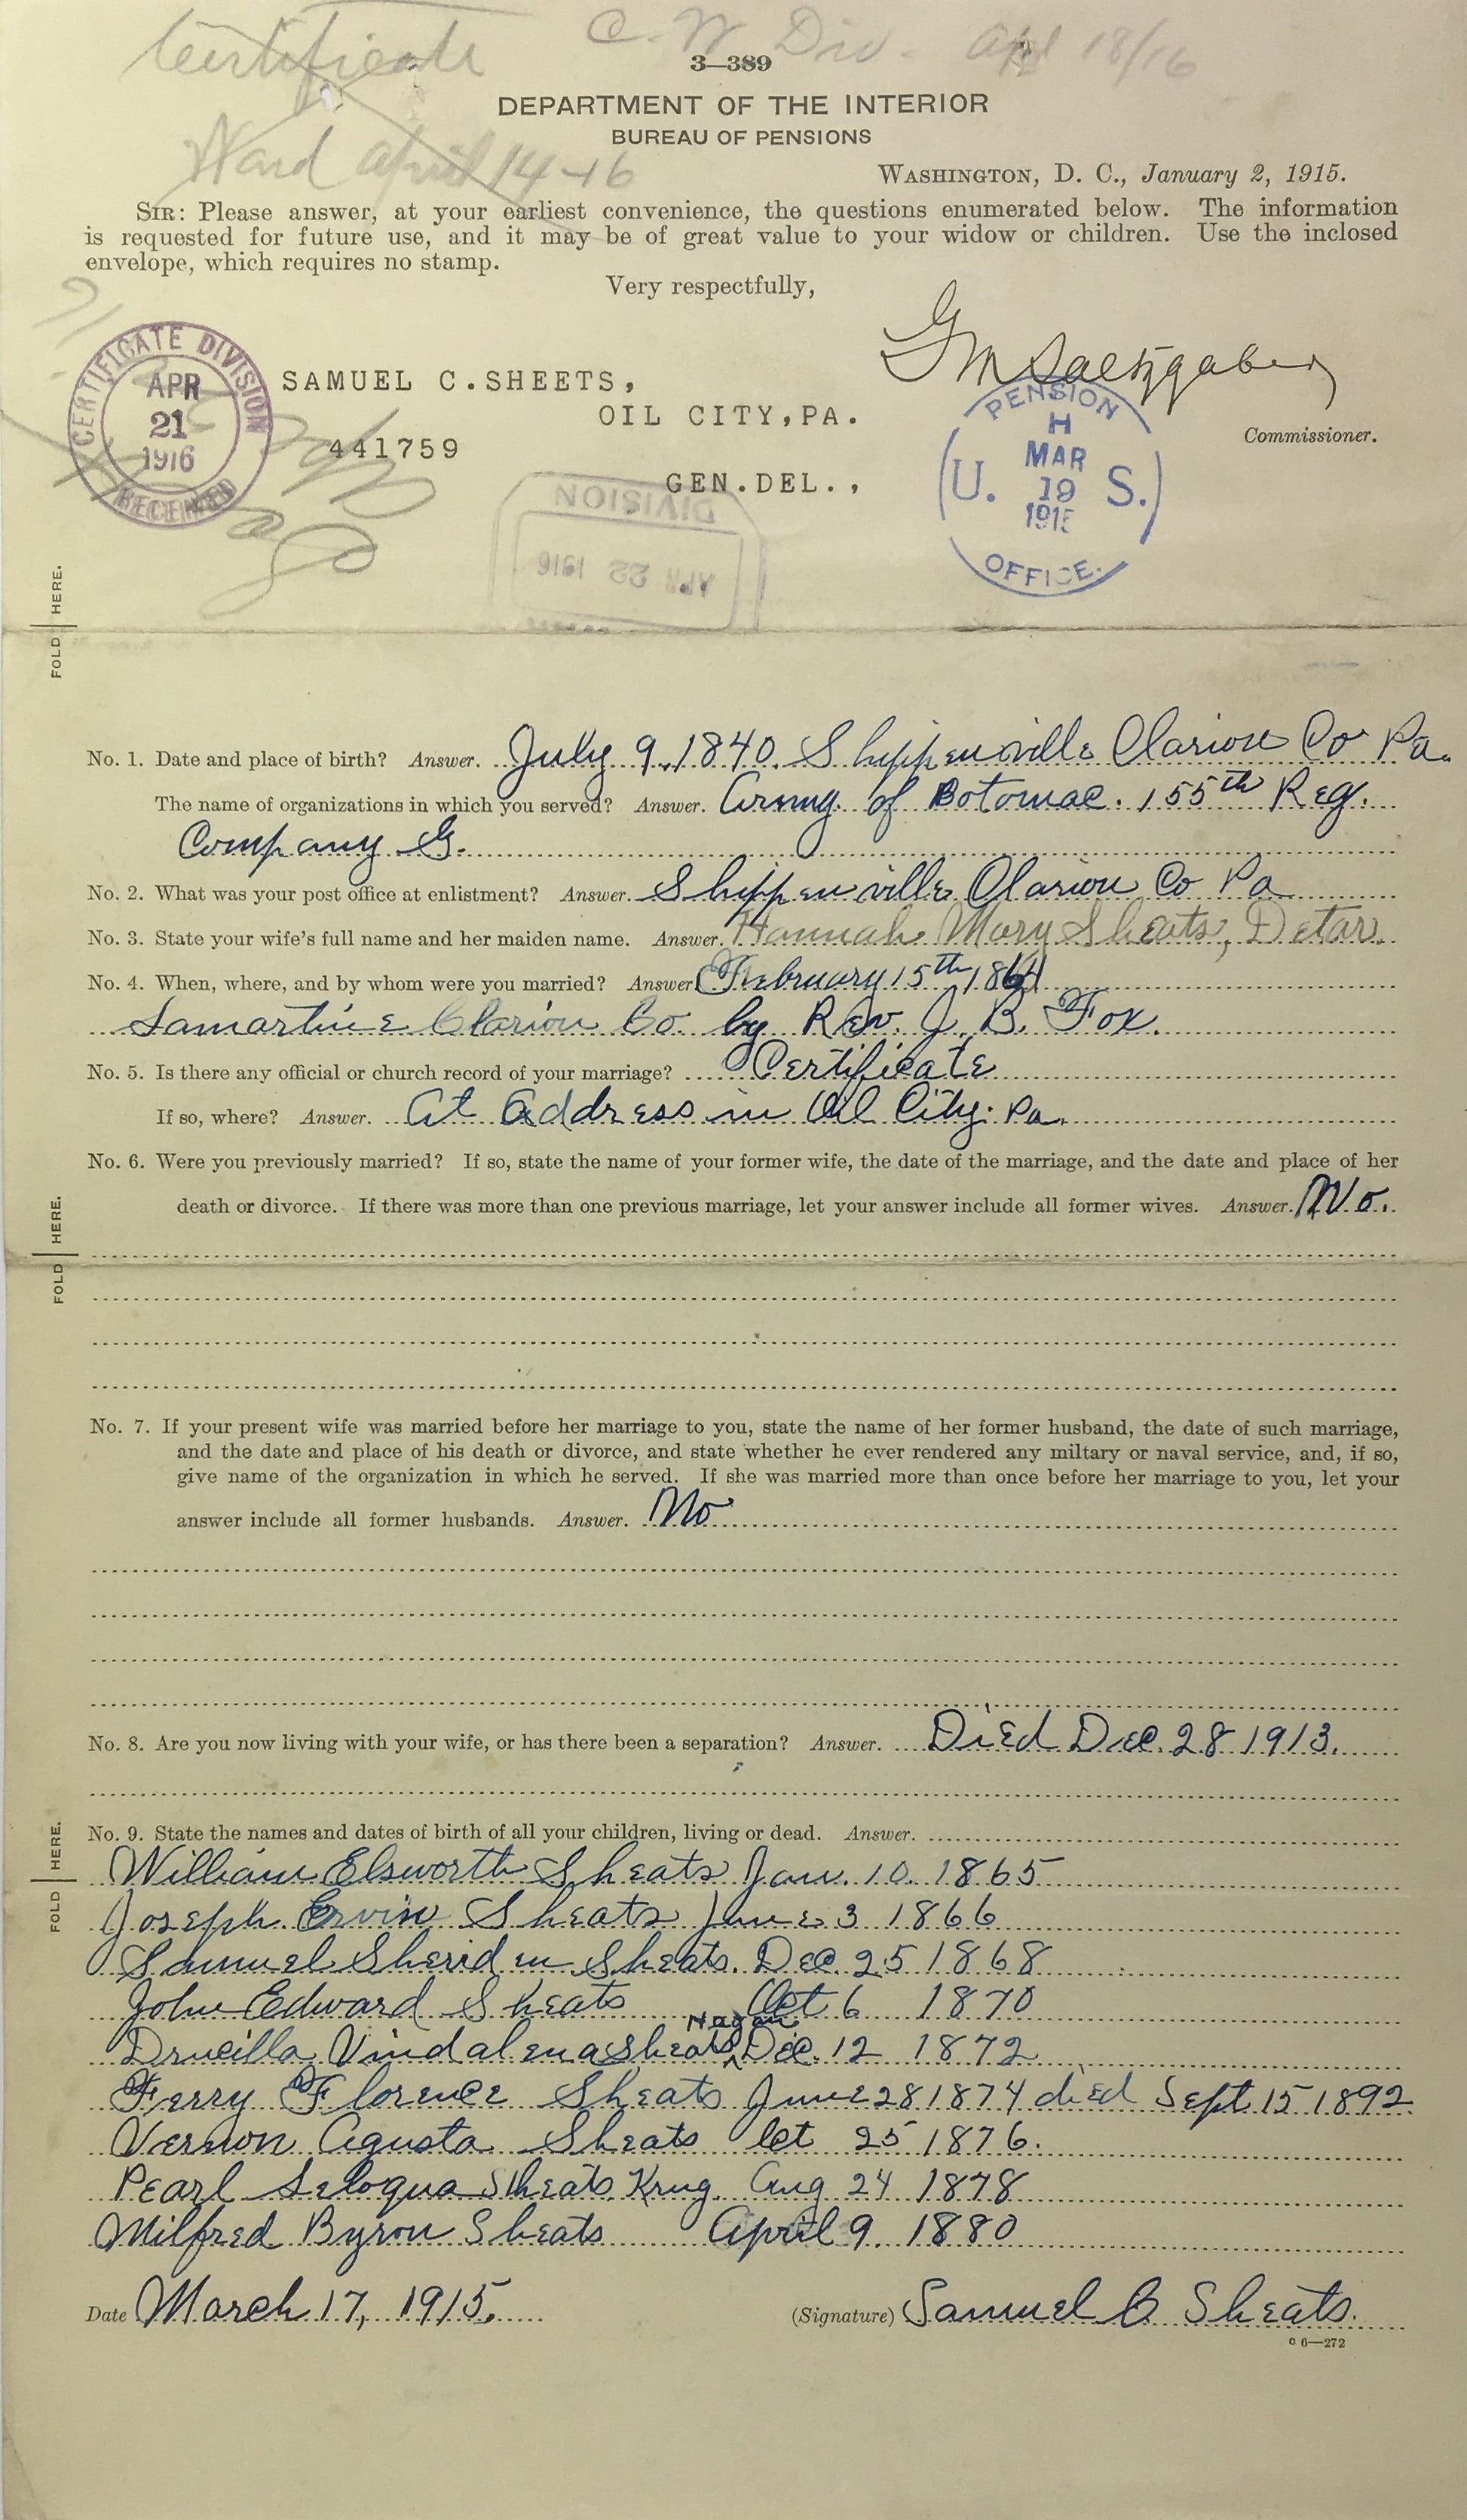 Certificate C. W Div. Apl 18/16
3—389
DEPARTMENT OF THE INTERIOR
BUREAU OF PENSIONS
Ward april 14-16
WASHINGTON, D. C., January 2, 1915.
SIR: Please answer, at your earliest convenience, the questions enumerated below. The information
is requested for future use, and it may be of great value to your widow or children. Use the inclosed
envelope, which requires no stamp.
Very respectfully,
G M Saltzgaber
Commissioner.
CERTIFICATE DIVISION
APR
21
1916
RECEIVED
SAMUEL C.SHEETS,
OIL CITY,PA.
441759
GEN.DEL.,
PENSION
H
MAR
U. 19 S.
1915
OFFICE.
DIVISION
APR 22 1916
FOLD HERE.
No. 1. Date and place of birth? Answer. July 9, 1840. Shippenville Clarion Co Pa.
The name of organizations in which you served? Answer. Army of Botomac. 155th Reg.
Company G.
No. 2. What was your post office at enlistment? Answer. Shippenville Clarion Co Pa
No. 3. State your wife's full name and her maiden name. Answer. Hannah Mary Sheats, Detar.
No. 4. When, where, and by whom were you married? Answer February 15th 1864
Lamartine Clarion Co. by Rev. J. B. Fox.
No. 5. Is there any official or church record of your marriage? Certificate
If so, where? Answer. At Address in Oil City. Pa.
No. 6. Were you previously married? If so, state the name of your former wife, the date of the marriage, and the date and place of her
death or divorce. If there was more than one previous marriage, let your answer include all former wives. Answer. No.
FOLD HERE.
No. 7. If your present wife was married before her marriage to you, state the name of her former husband, the date of such marriage,
and the date and place of his death or divorce, and state whether he ever rendered any miltary or naval service, and, if so,
give name of the organization in which he served. If she was married more than once before her marriage to you, let your
answer include all former husbands. Answer. No
No. 8. Are you now living with your wife, or has there been a separation? Answer. Died Dec. 28 1913.
No. 9. State the names and dates of birth of all your children, living or dead. Answer.
FOLD HERE.
William Elsworth Sheats Jan. 10. 1865
Joseph Ervin Sheats June 3 1866
Samuel Sheriden Sheats. Dec. 25 1868
John Edward Sheats Oct 6 1870
Nagan
Drucilla Vindalena Sheats Dec. 12 1872
Ferry Florence Sheats June 28 1874 died Sept. 15 1892
Vernon Agusta Sheats Oct 25 1876.
Pearl Seloqua Sheats. Krug. Aug 24 1878
Milfred Byron Sheats April 9. 1880
Date March 17, 1915.
(Signature) Samuel C Sheats.
C 6—272